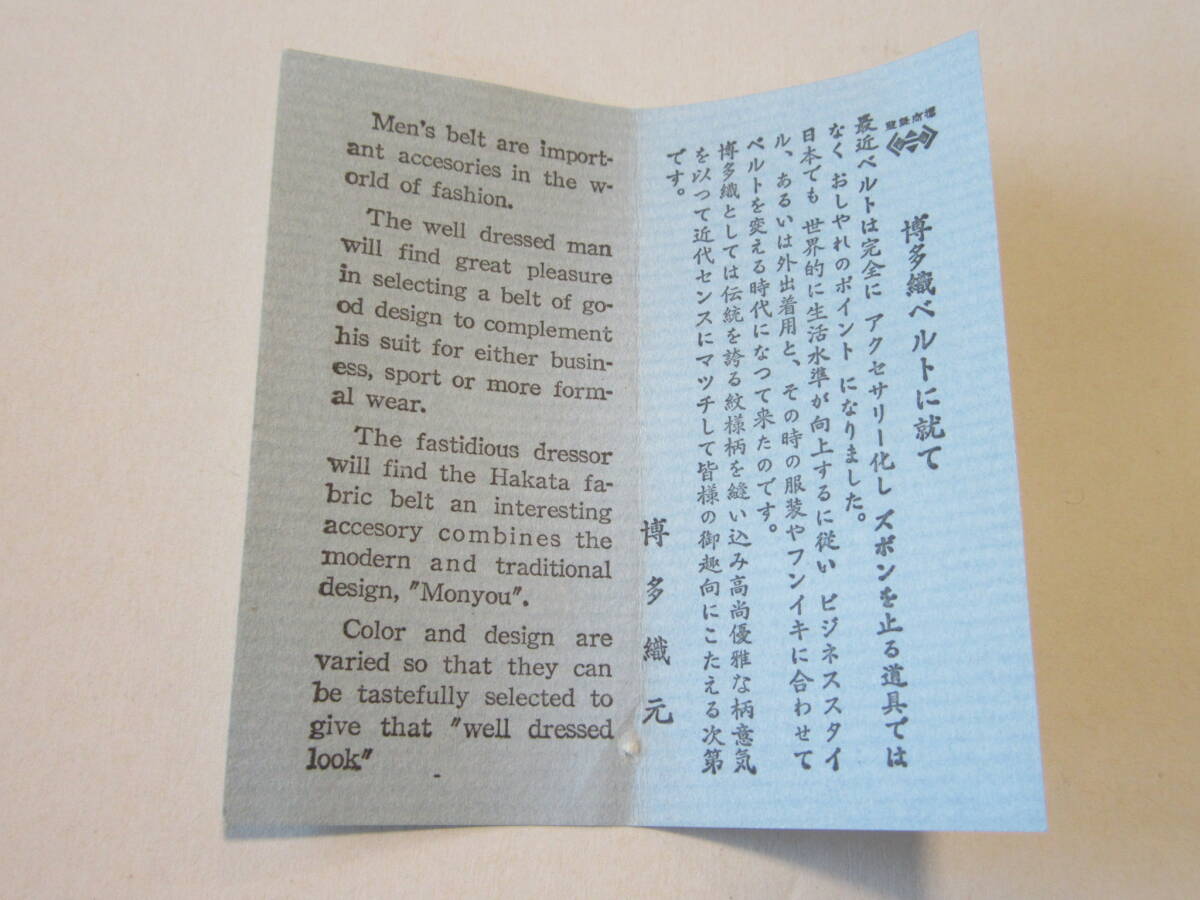 Men's belt are import-
ant accesories in the w-
orld of fashion.
The well dressed man
will find great pleasure
in selecting a belt of go-
od design to complement
his suit for either busin-
ess, sport or more form-
al wear.
The fastidious dressor
will find the Hakata fa-
bric belt an interesting
accesory combines the
modern and traditional
design, "Monyou".
Color and design are
varied so that they can
be tastefully selected to
give that "well dressed
look"
博多織ベルトに就て
最近ベルトは完全に アクセサリー化し ズボンを止る道具では
なく おしやれのポイント になりました。
日本でも 世界的に生活水準が向上するに従い ビジネススタイ
ル、あるいは外出着用と、その時の服装やフンイキに合わせて
ベルトを変える時代になつて来たのです。
博多織としては伝統を誇る紋様柄を縫い込み高尚優雅な柄意気
を以つて近代センスにマツチして皆様の御趣向にこたえる次第
です。
博多織元